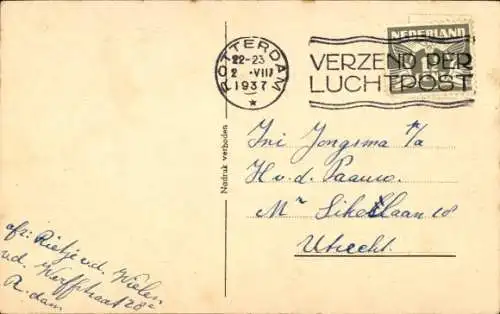 ROTTERDAM
22-23
2 .VIII
1937
*
VERZEND PER
LUCHTPOST
NEDERLAND
Nadruk verboden
Ini Jongsma p/a
H.v.d. Paauw.
Mr laan 18
Utrecht.
afz: Rietje v.d. Wielen
v.d. Werffstraat 28a
R.dam